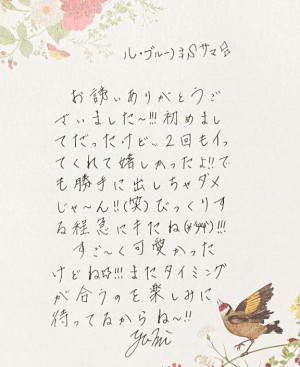 お誘いありがとうご
ざいました〜!!!初めまし
てだったけど、2回もイッ
てくれて嬉しかったよ!!で
も勝手に出しちゃダメ
じゃ〜ん!!(笑)びっくりす
る程急にキたね
すご〜く可愛かった
けどね!!!またタイミング
が合うのを楽しみに
待ってるからね〜!!